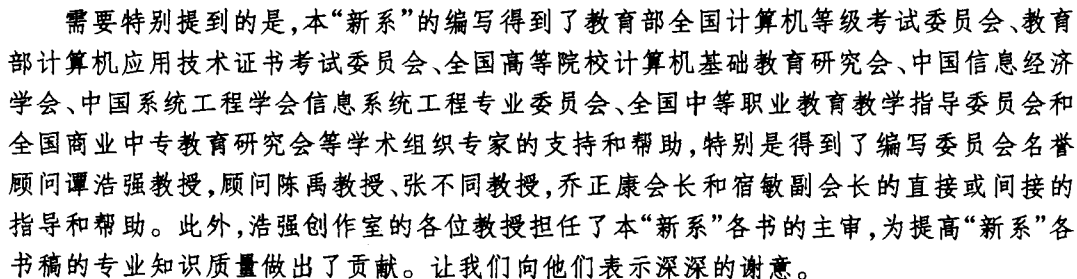 需要特别提到的是,本“新系”的编写得到了教育部全国计算机等级考试委员会、教育
部计算机应用技术证书考试委员会、全国高等院校计算机基础教育研究会、中国信息经济
学会、中国系统工程学会信息系统工程专业委员会、全国中等职业教育教学指导委员会和
全国商业中专教育研究会等学术组织专家的支持和帮助,特别是得到了编写委员会名誉
顾问谭浩强教授,顾问陈禹教授、张不同教授,乔正康会长和宿敏副会长的直接或间接的
指导和帮助。此外,浩强创作室的各位教授担任了本“新系”各书的主审,为提高“新系”各
书稿的专业知识质量做出了贡献。让我们向他们表示深深的谢意。